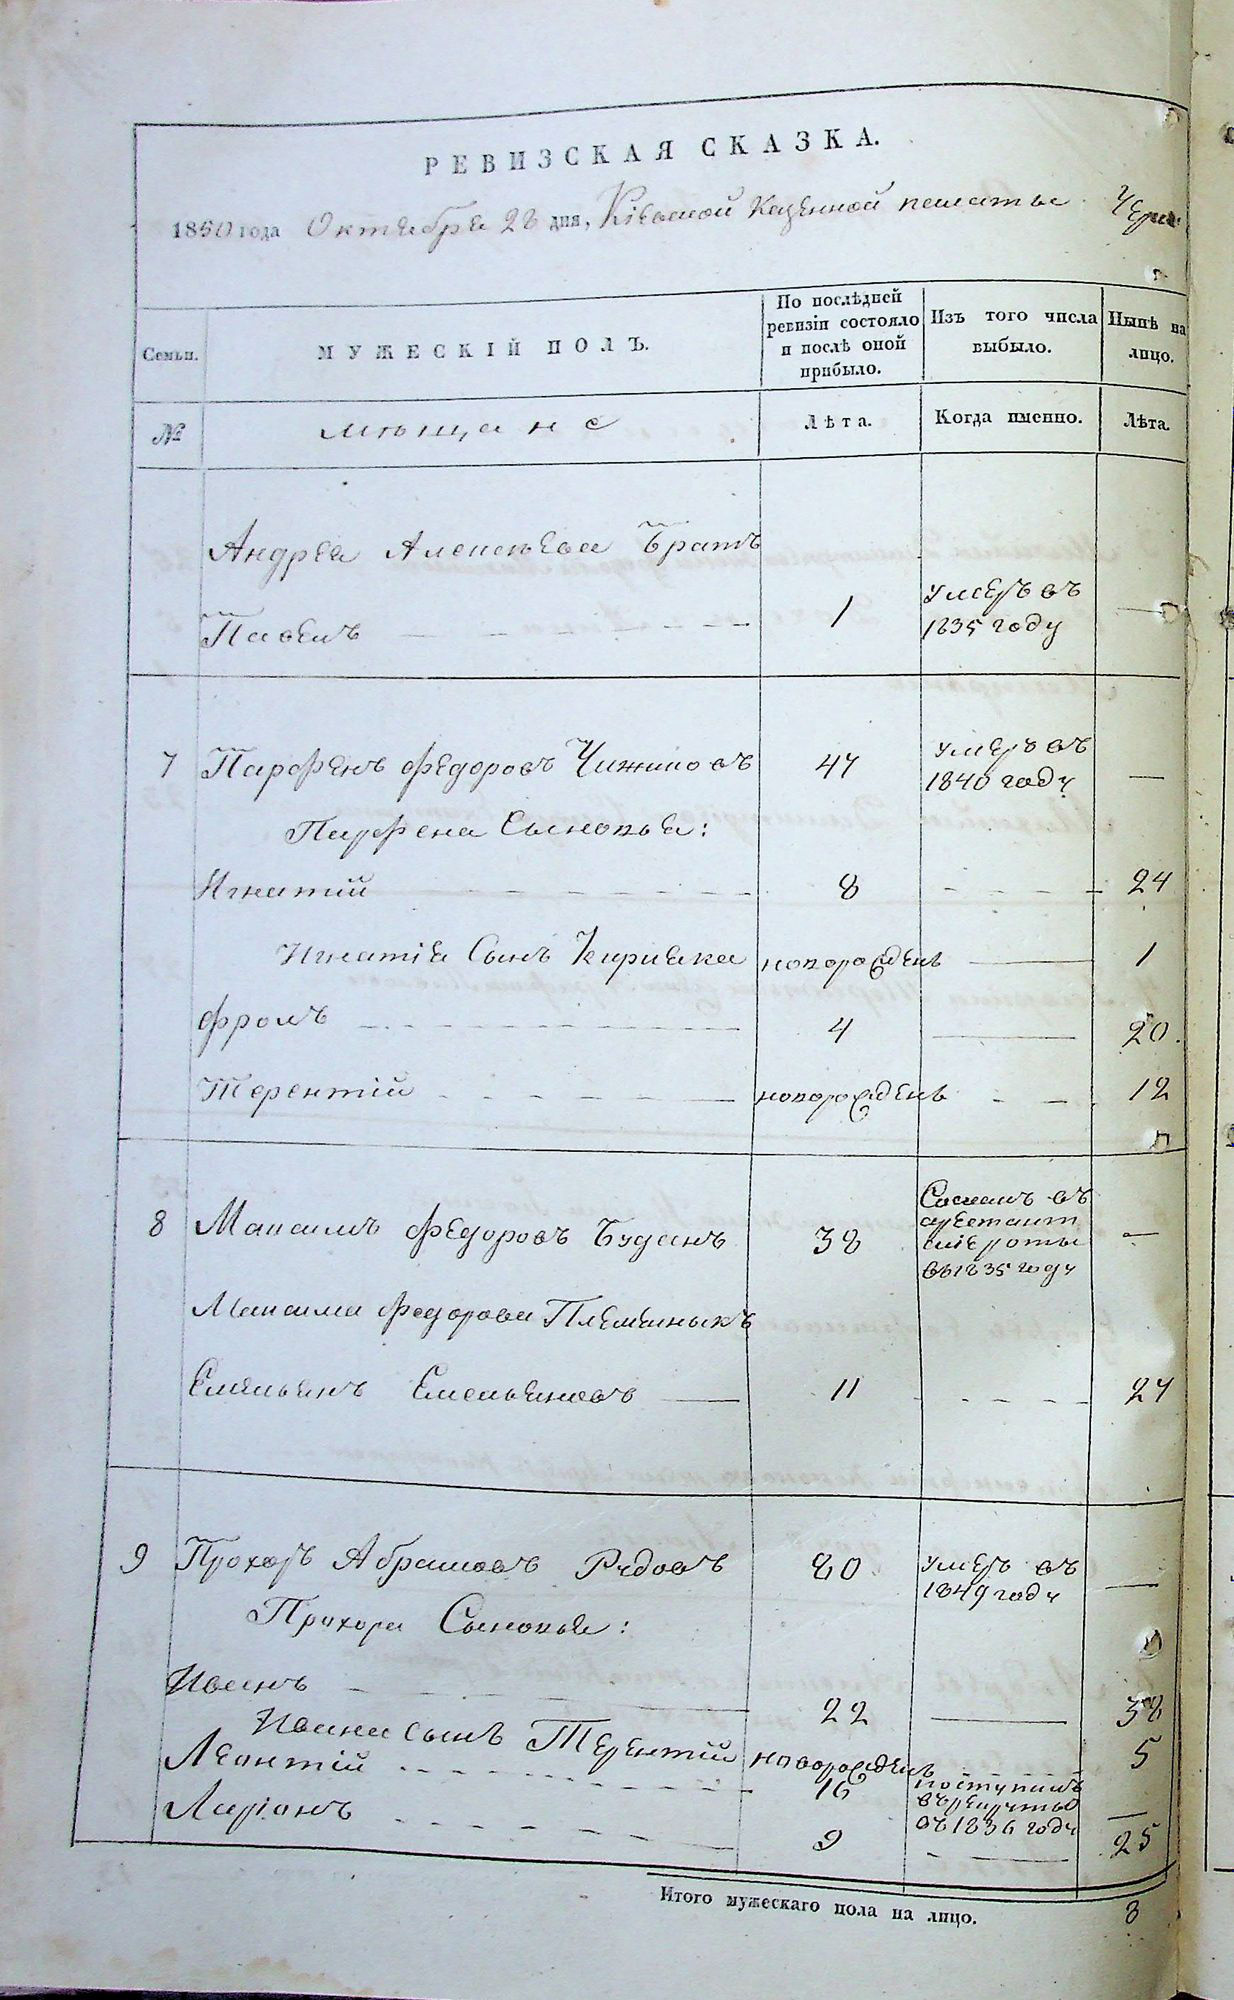 РЕВИЗСКАЯ СКАЗКА.
1850 года Октября 28 дня, Кіевской Казенной палаты
Семьи.
МУЖЕСКІЙ ПОЛЪ.
По послѣдней ревизіи состояло и послѣ оной прибыло.
Изъ того числа выбыло.
Нынѣ на лицо.
№
мѣщане
Лѣта.
Когда именно.
Лѣта.
Андрея Алексѣева братъ
Павелъ 1 умеръ въ 1835 году —
7 Парфенъ Федоровъ Чижиковъ 47 умеръ въ 1840 году —
Парфена Сыновья:
Игнатій 8 24
Игнатія Сынъ Кириака новорожденъ 1
Фролъ 4 20.
Терентій новорожденъ 12
8 Максимъ Федоровъ Будянъ 38 Сосланъ въ арестант скіе роты въ 1835 году —
Максима Федорова Племяныкъ
Емельянъ Емельяновъ 11 27
9 Прохоръ Абрамовъ Рудовъ 80 умеръ въ 1849 году —
Прохора Сыновья:
Иванъ 22 38
Ивана сынъ Терентій новорожденъ 5
Леонтій 16 поступилъ въ рекруты въ 1836 году —
Ларіонъ 9 25
Итого мужескаго пола на лицо. 8